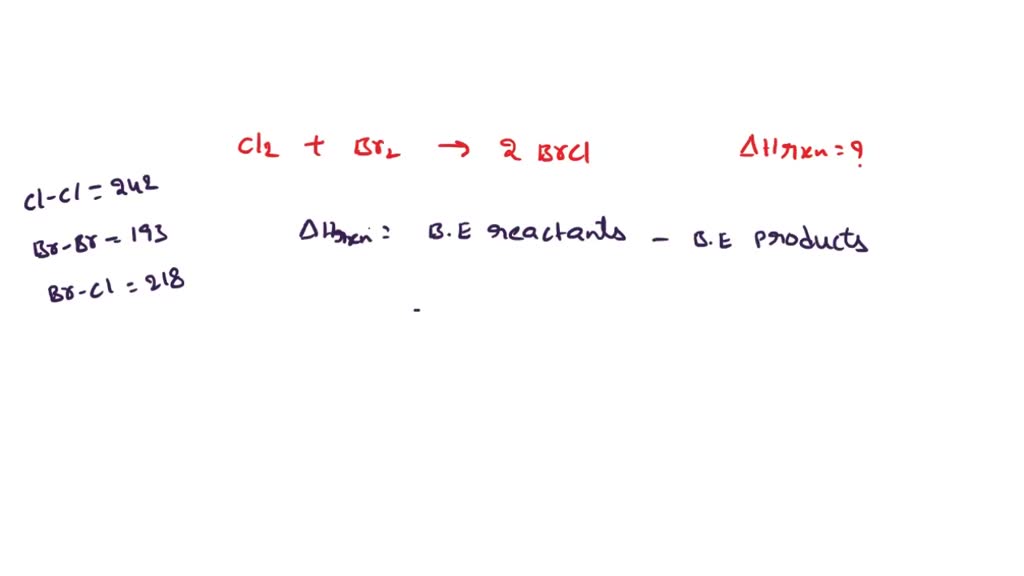 Cl₂ + Br₂ → 2 BrCl ΔHrxn = ?
Cl-Cl = 242
Br-Br = 193
Br-Cl = 218
ΔHrxn = B.E reactants - B.E products
-